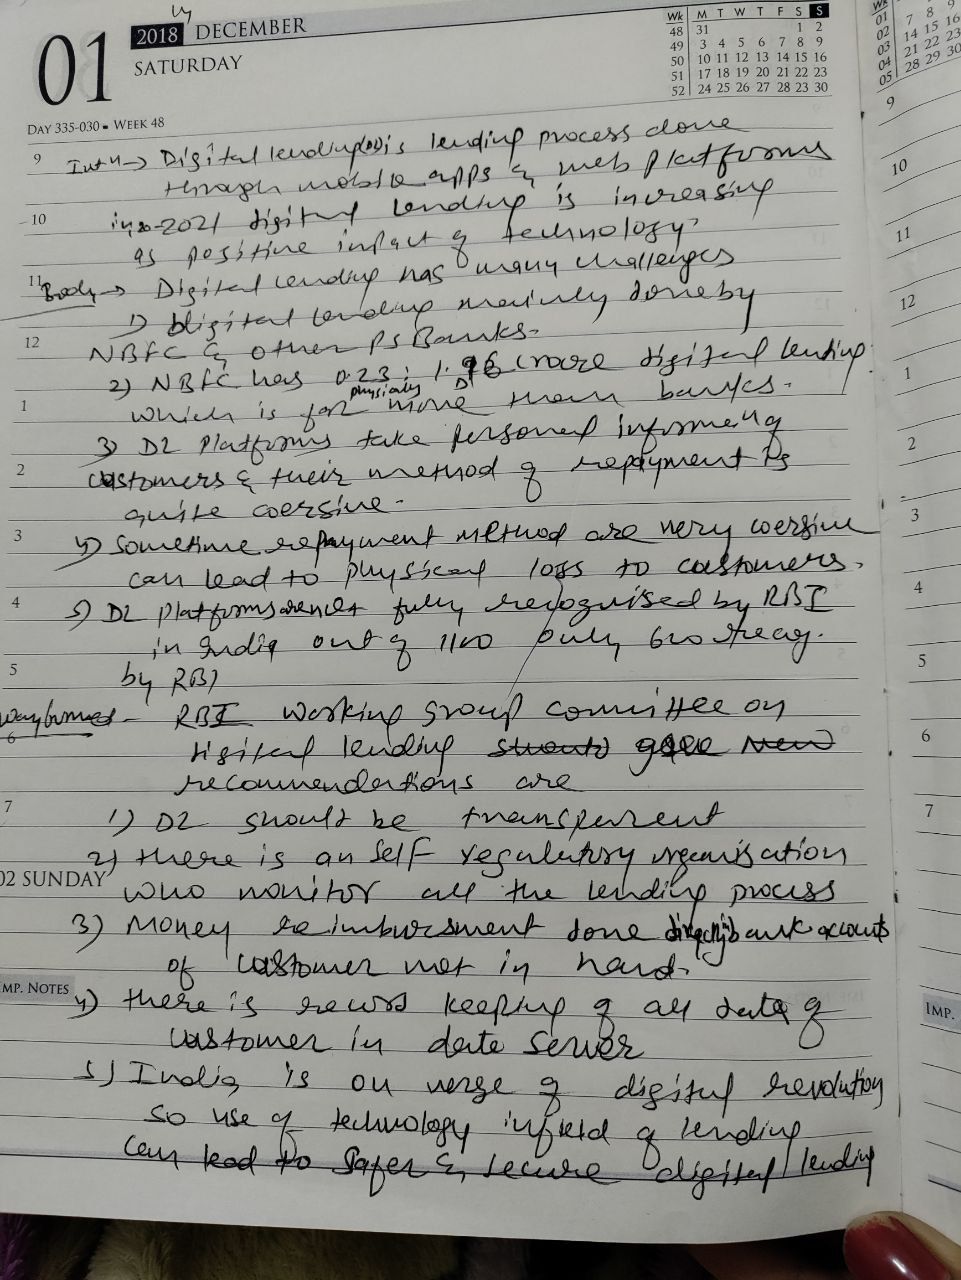 01
2018 DECEMBER
SATURDAY
DAY 335-030 • WEEK 48
Wk M T W T F S S
48 31 1 2
49 3 4 5 6 7 8 9
50 10 11 12 13 14 15 16
51 17 18 19 20 21 22 23
52 24 25 26 27 28 23 30
9 Digital lending is lending process done
through mobile apps & web platforms
10 2021 digital lending is increasing
as positive impact of technology.
11 Body → Digital lending has many challenges
1) Digital lending mainly done by
12 NBFC & other Ps Banks.
2) NBFC has 0.23 : crore digital lending
physically
1 which is far more than banks.
3) DL Platforms take personal
2 customers & their method of repayment is
quite coersive.
3 4) Sometime repayment method are very coersive
can lead to physical loss to customers.
4 5) DL platforms fully recognised by RBI
in India out of 1100 only 600
5 by RBI
6 RBI working group committee on
digital lending should new
recommendations are
7 1) DL should be transparent
2) there is an self regulatory organisation
02 SUNDAY
who monitor all the lending process
3) Money reimbursment done directly bank accounts
of customer not in hand.
IMP. NOTES
4) there is record keeping of all data of
customer in date server
5) India is on verge of digital revolution
so use of technology in field of lending
can lead to safer & secure digital lending
Wk
01
02 7 8 9
03 14 15 16
04 21 22 23
05 28 29 30
9
10
11
12
1
2
3
4
5
6
7
IMP.